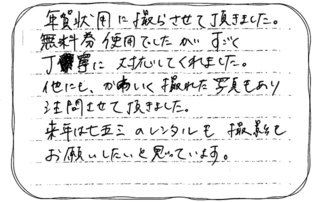 年賀状用に撮らせて頂きました。
無料券使用でしたが すごく
丁寧に 対応してくれました。
他にも、かわいく撮れた写真もあり
注問させて頂きました。
来年は七五三 のレンタルも 撮影も
お願いしたいと思っています。